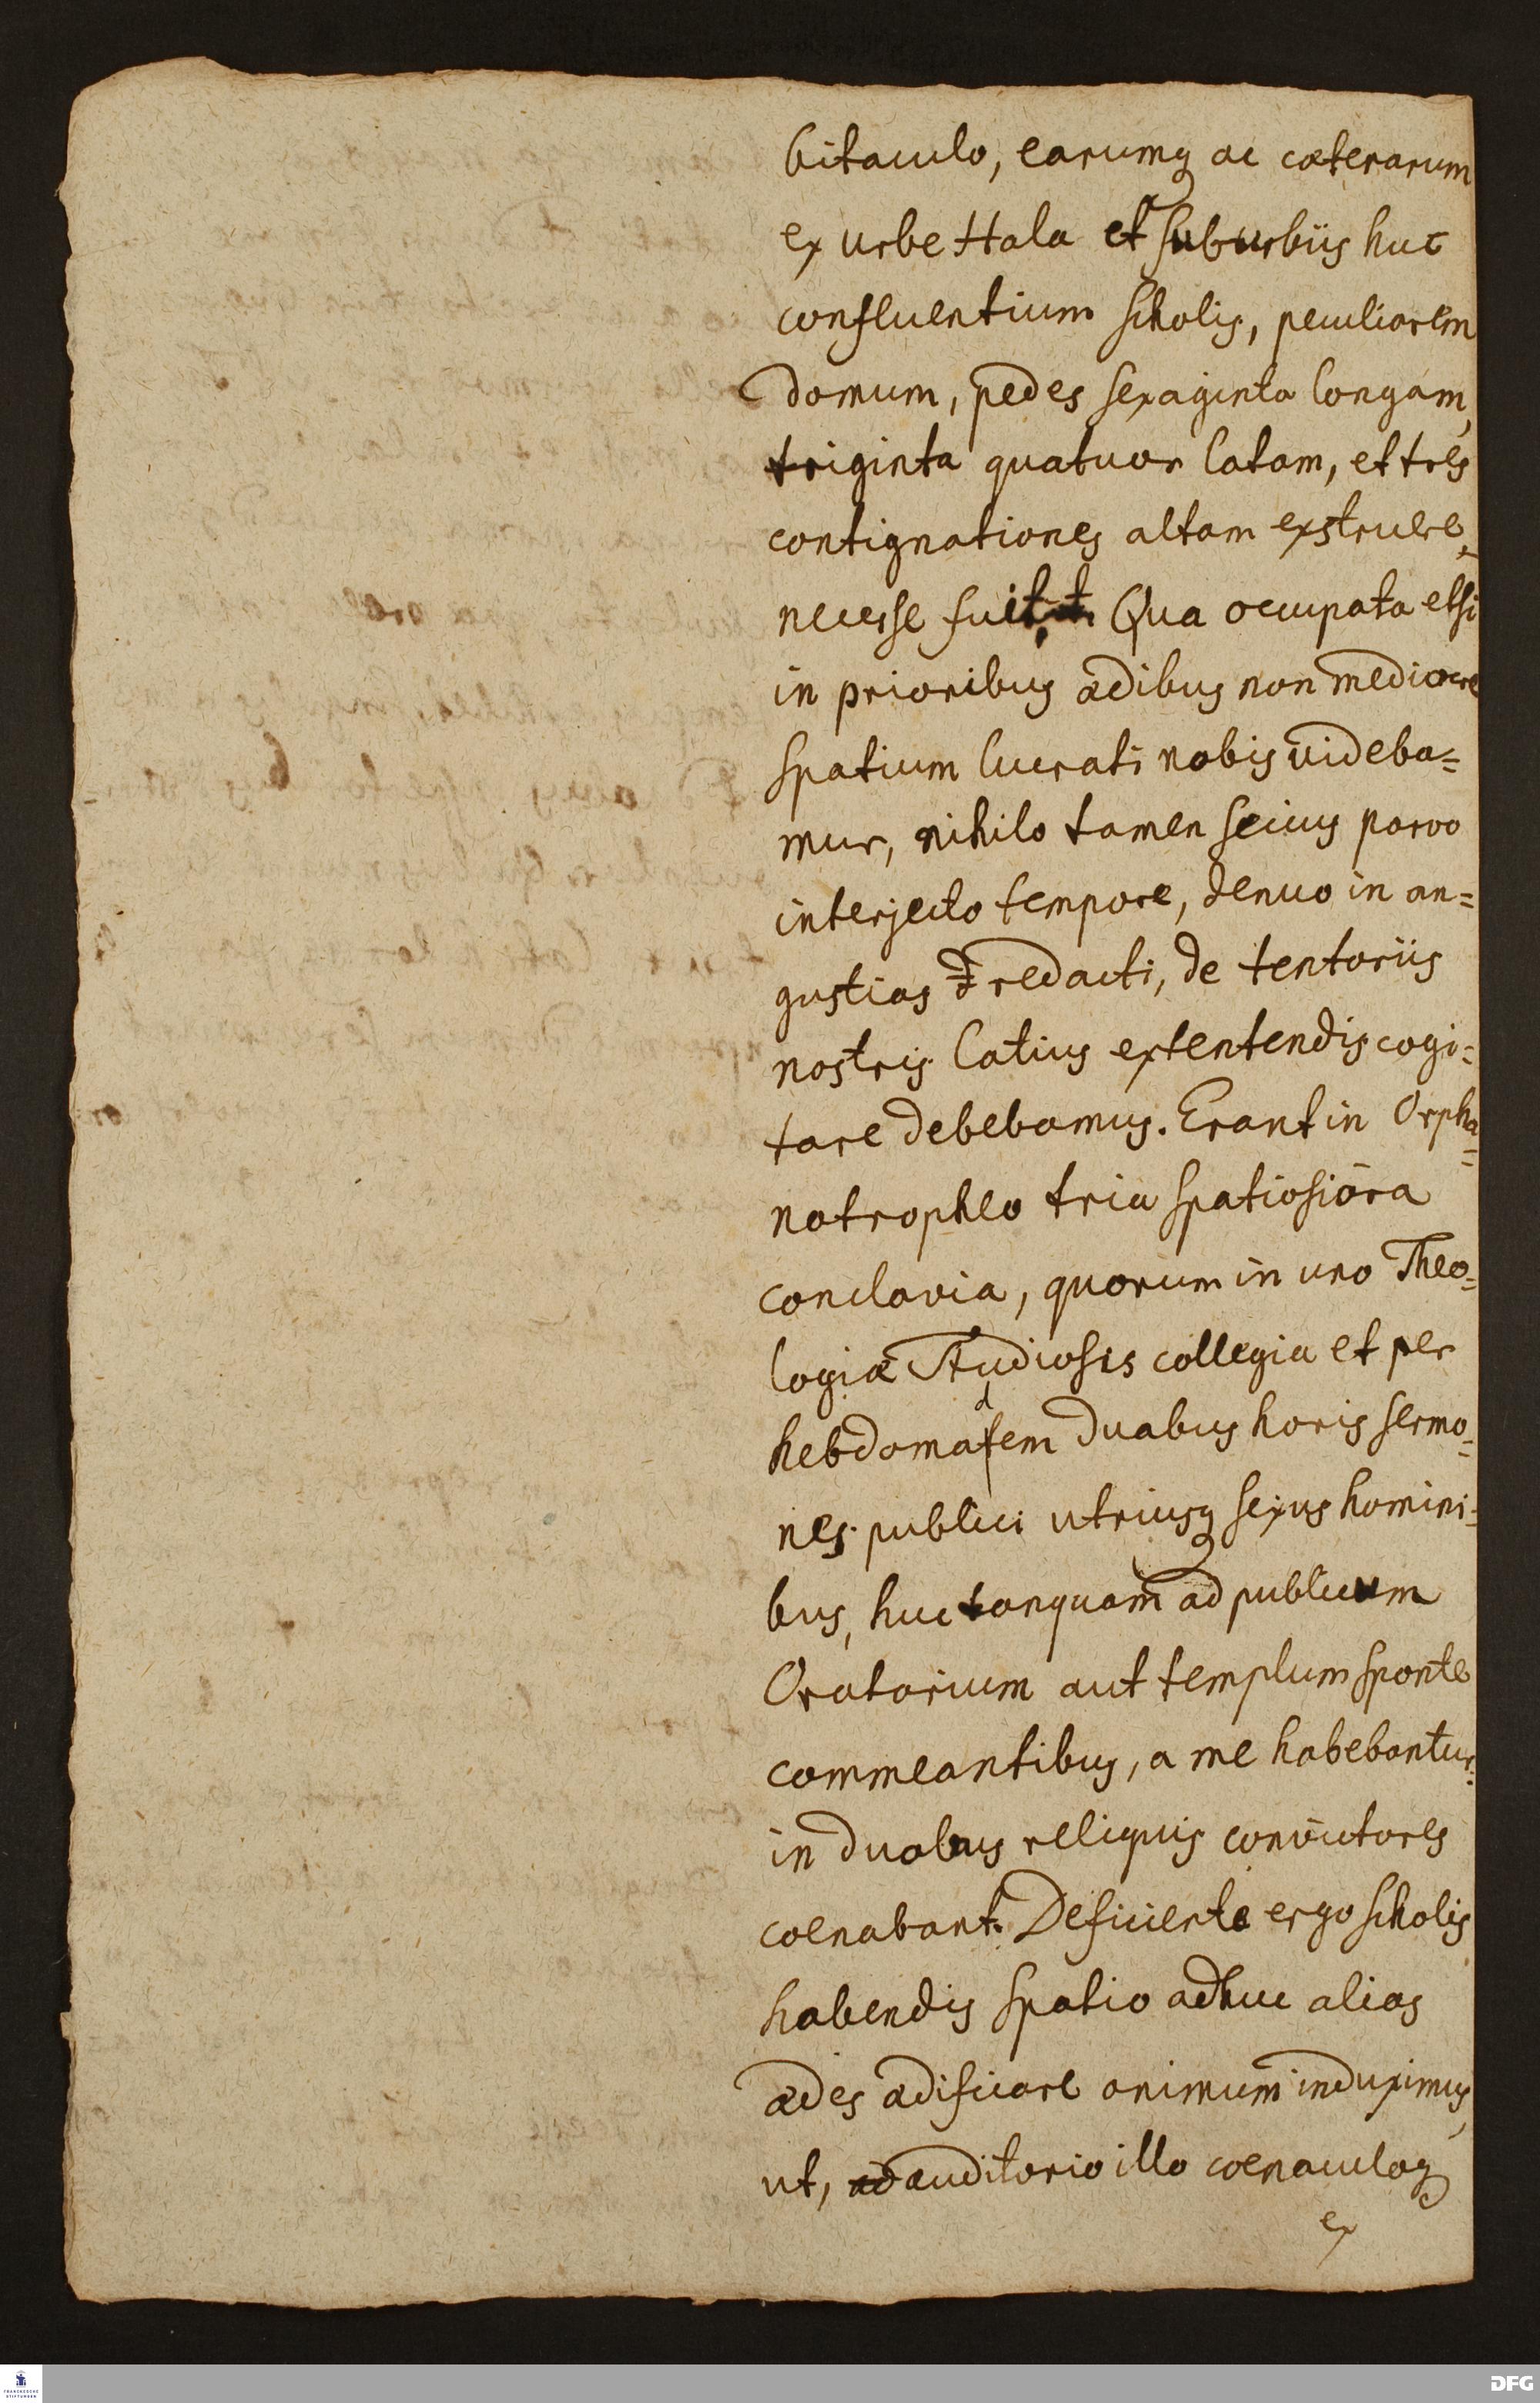 bitaculo, earumq ac cæterarum
ex urbe Hala et suburbiis huc
confluentium scholis, peculiarem
domum, pedes sexaginta longam,
triginta quatuor latam, et tres
contignationes altam exstruere,
necesse fuit. Qua occupata etsi
in prioribus ædibus non mediocre
spatium lucrati nobis videba=
mur, nihilo tamen secius parvo
interjecto tempore, denuo in an=
gustias redacti, de tentoriis
nostris latius extentendis cogi=
tare debebamus. Erant in Orpha=
notropheo tria spatiosiora
conclavia, quorum in uno Theo=
logiæ Studiosis collegia et per
hebdomadem duabus horis sermo=
nes publici utriusq sexus homini=
bus, huc tanquam ad publicum
Oratorium aut templum sponte
commeantibus, a me habebantur:
in duabus reliquis convictores
coenabant. Deficiente ergo scholis
habendis spatio adhuc alias
ædes ædificare animum induximus,
ut, ad auditorio illo coenaculoq
ex
FRANCKESCHE
STIFTUNGEN
DFG